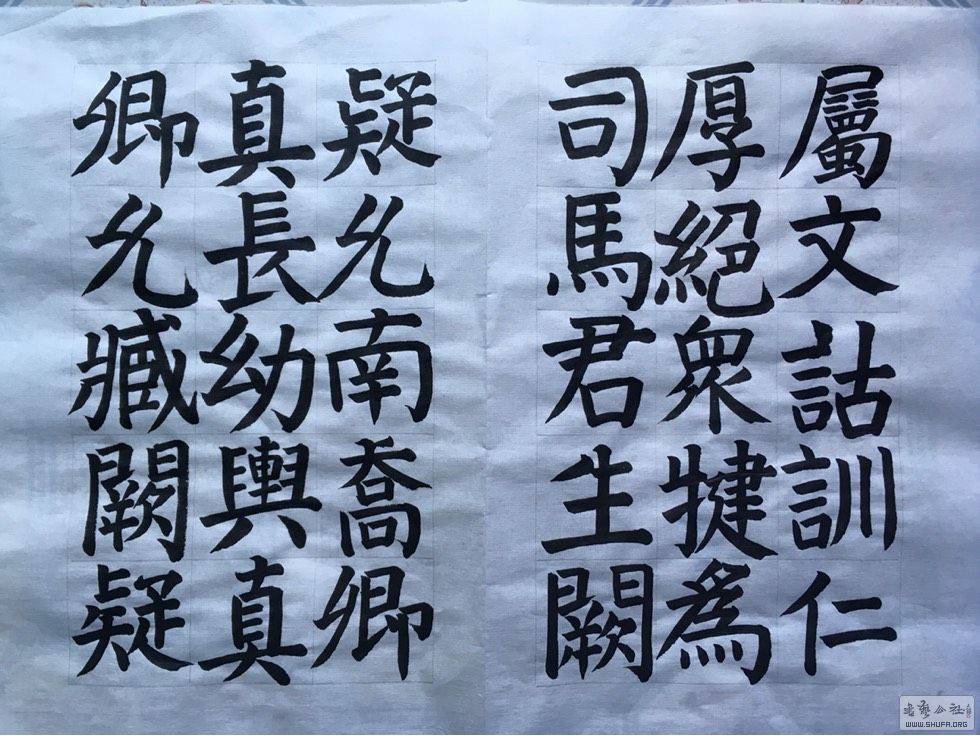 屬文詁訓仁
厚絕眾犍為
司馬君生闕
疑允南喬卿
真長幼輿真
卿允臧闕疑
書藝公社
WWW.SHUFA.ORG